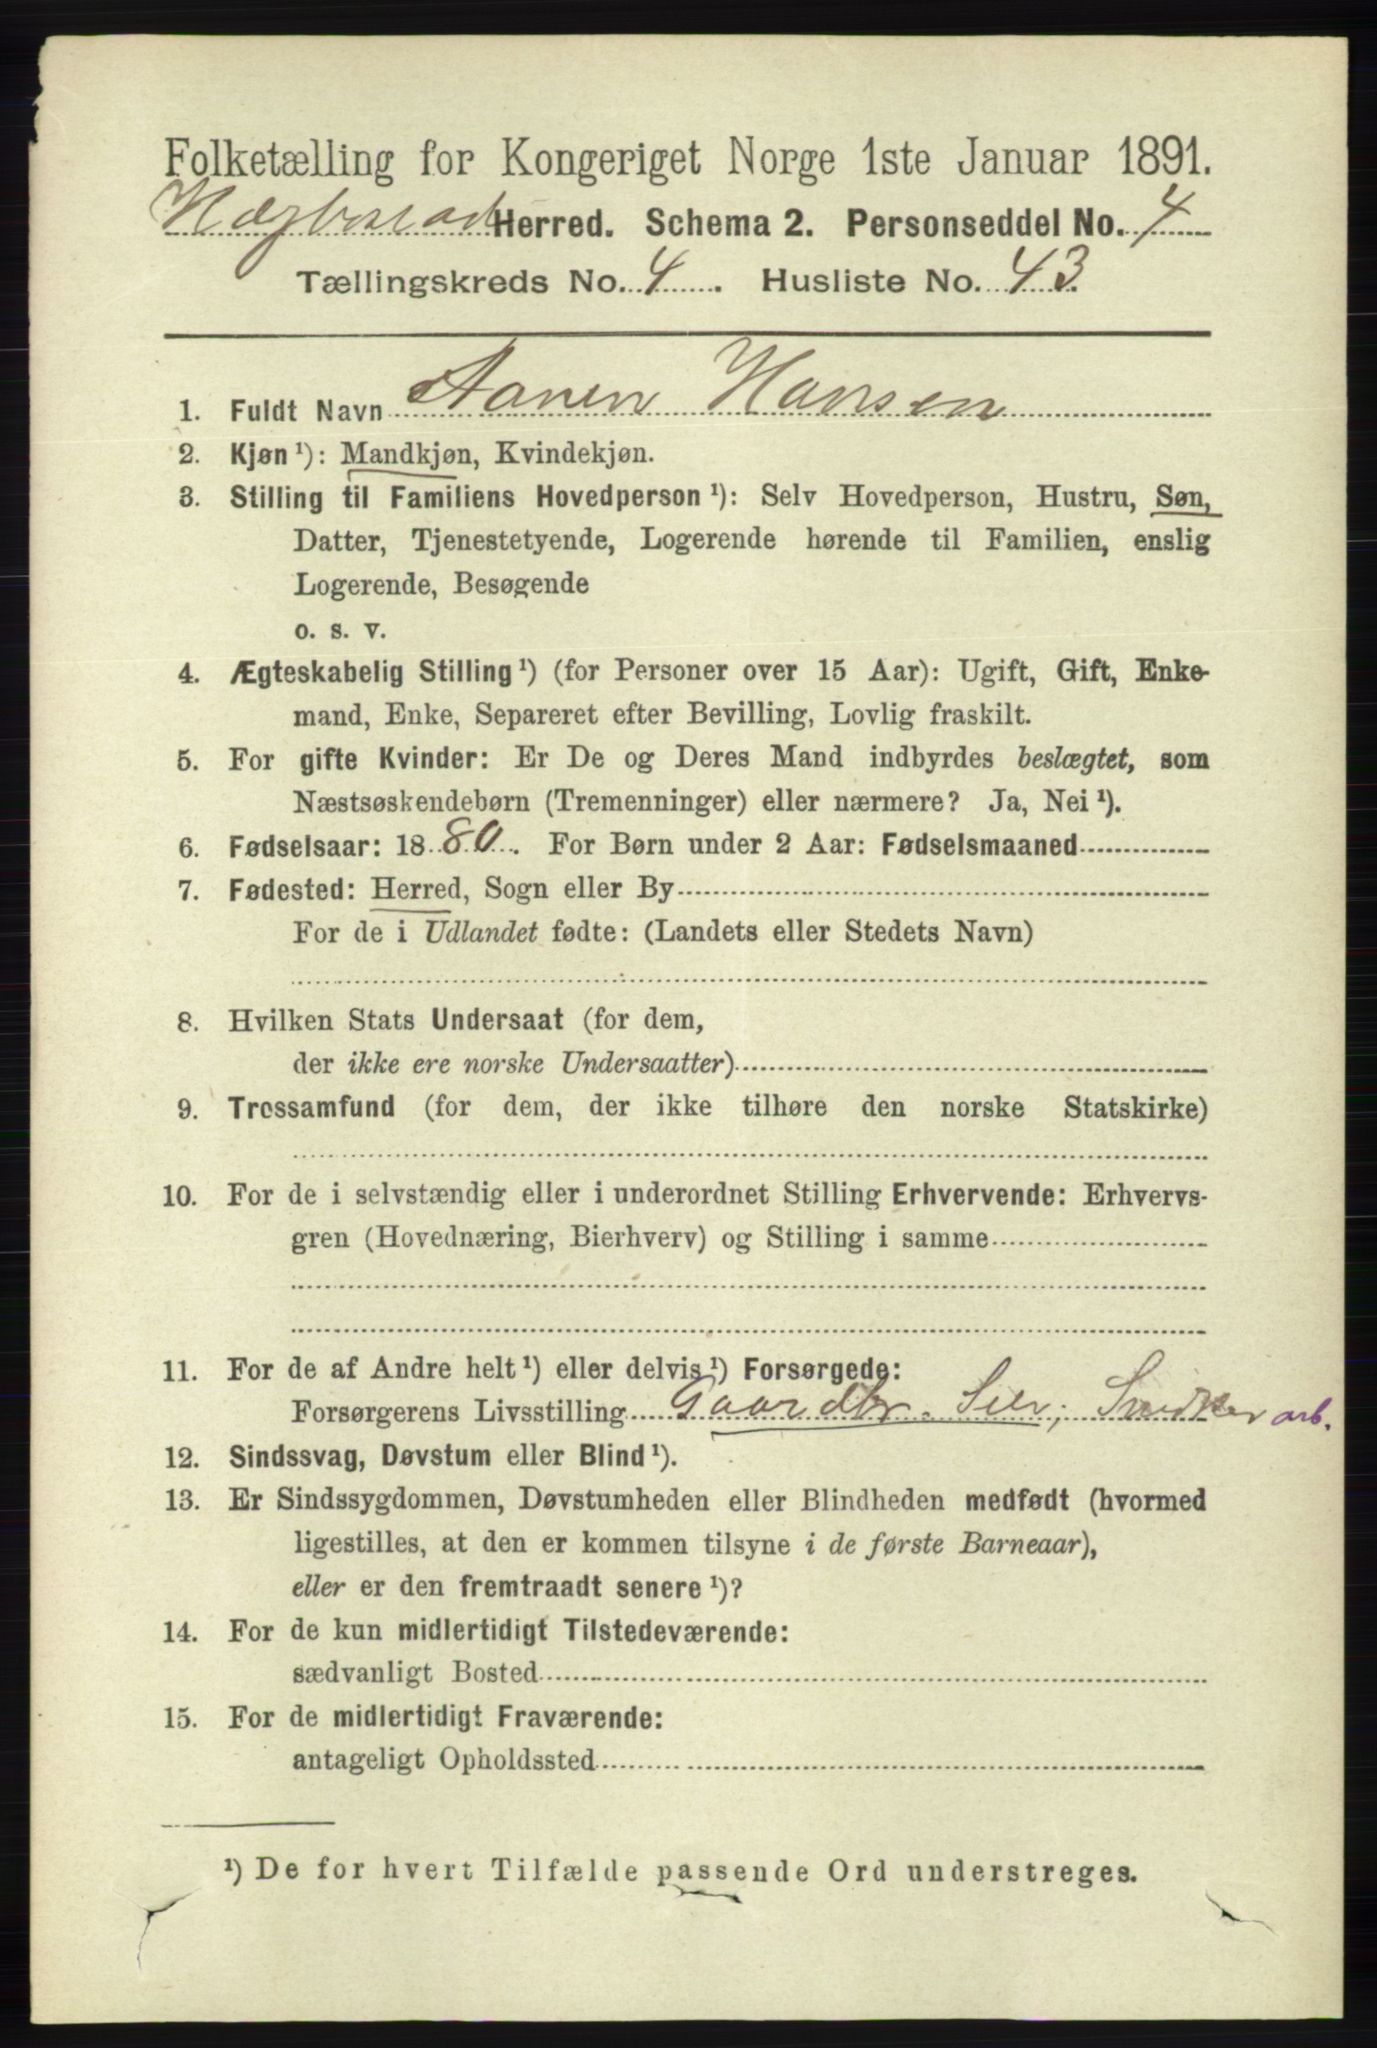 Folketælling for Kongeriget Norge 1ste Januar 1891.
Hægbostad Herred. Schema 2. Personseddel No. 4
Tællingskreds No. 4. Husliste No. 43.
1. Fuldt Navn Aanen Hansen
2. Kjøn ¹): Mandkjøn, Kvindekjøn.
3. Stilling til Familiens Hovedperson ¹): Selv Hovedperson, Hustru, Søn,
Datter, Tjenestetyende, Logerende hørende til Familien, enslig
Logerende, Besøgende
o. s. v.
4. Ægteskabelig Stilling ¹) (for Personer over 15 Aar): Ugift, Gift, Enke-
mand, Enke, Separeret efter Bevilling, Lovlig fraskilt.
5. For gifte Kvinder: Er De og Deres Mand indbyrdes beslægtet, som
Næstsøskendebørn (Tremenninger) eller nærmere? Ja, Nei ¹).
6. Fødselsaar: 1880. For Børn under 2 Aar: Fødselsmaaned
7. Fødested: Herred, Sogn eller By
For de i Udlandet fødte: (Landets eller Stedets Navn)
8. Hvilken Stats Undersaat (for dem,
der ikke ere norske Undersaatter)
9. Trossamfund (for dem, der ikke tilhøre den norske Statskirke)
10. For de i selvstændig eller i underordnet Stilling Erhvervende: Erhvervs-
gren (Hovednæring, Bierhverv) og Stilling i samme
11. For de af Andre helt ¹) eller delvis ¹) Forsørgede:
Forsørgerens Livsstilling Gaardbr. Selv; Snidker arb.
12. Sindssvag, Døvstum eller Blind ¹).
13. Er Sindssygdommen, Døvstumheden eller Blindheden medfødt (hvormed
ligestilles, at den er kommen tilsyne i de første Barneaar),
eller er den fremtraadt senere ¹)?
14. For de kun midlertidigt Tilstedeværende:
sædvanligt Bosted
15. For de midlertidigt Fraværende:
antageligt Opholdssted
¹) De for hvert Tilfælde passende Ord understreges.